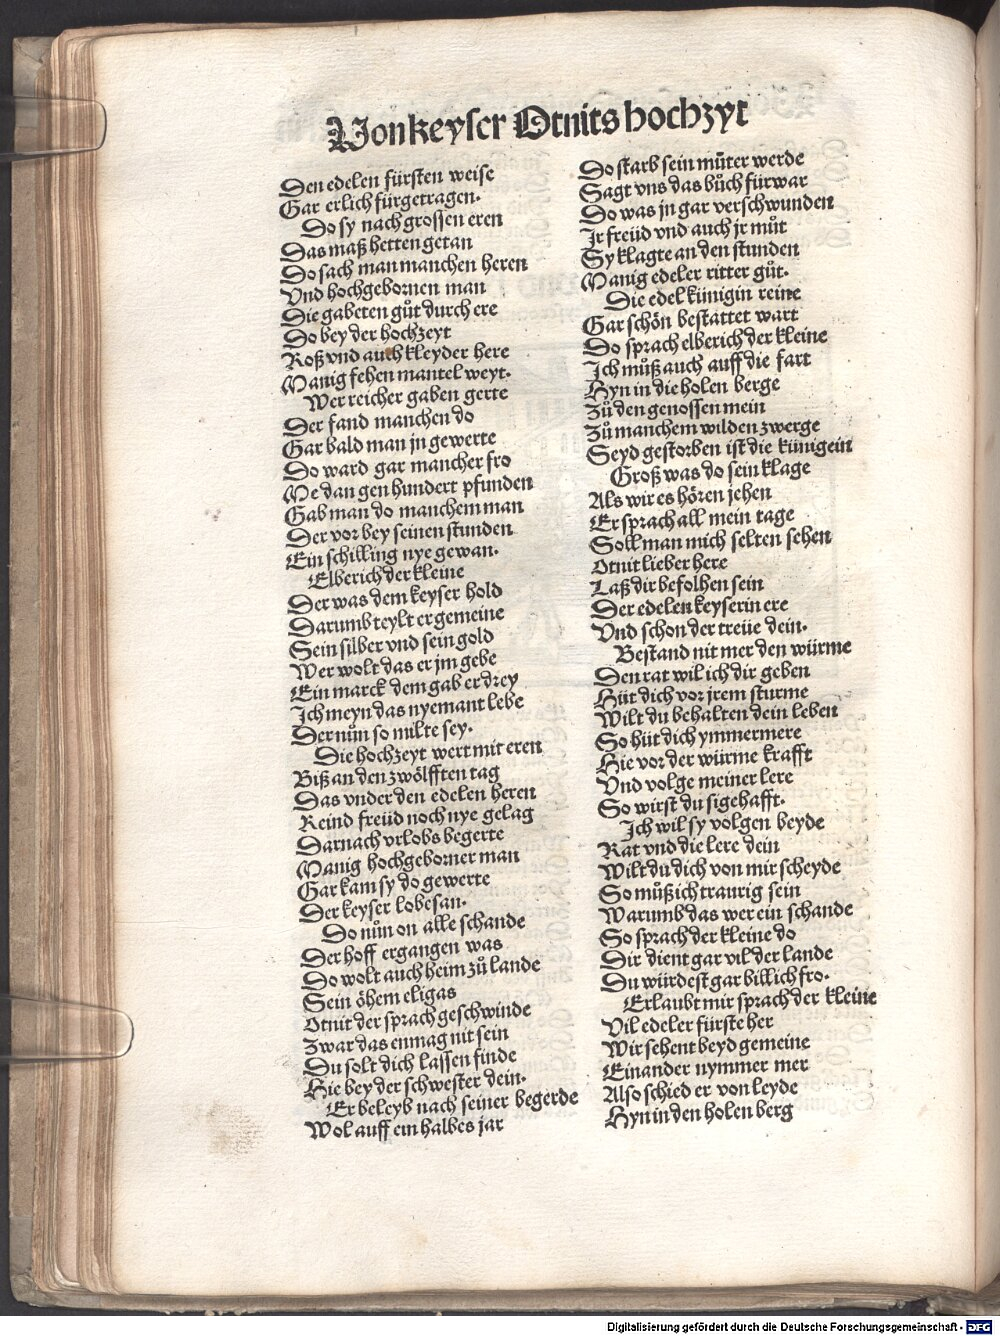 Von keyser Otnits hochzyt
Den edelen fürsten weise
Gar erlich fürgetragen.
Do sy nach grossen eren
Das maß hetten getan
Do sach man manchen heren
Vnd hochgebornen man
Die gabeten gůt durch ere
Do bey der hochzeyt
Roß vnd auch kleyder here
Manig fehen mantel weyt.
Wer reicher gaben gerte
Der fand manchen do
Gar bald man jn gewerte
Do ward gar mancher fro
Me dan gen hundert pfunden
Gab man do manchem man
Der vor bey seinen stunden
Ein schilling nye gewan.
Elberich der kleine
Der was dem keyser hold
Darumb teylt er gemeine
Sein silber vnd sein gold
Wer wolt das er jm gebe
Ein marck dem gab er drey
Ich meyn das nyemant lebe
Der nůn so milte sey.
Die hochzeyt wert mit eren
Biß an den zwölfften tag
Das vnder den edelen heren
Reind freüd noch nye gelag
Darnach vrlobs begerte
Manig hochgeborner man
Gar kam sy do gewerte
Der keyser lobesan.
Do nůn on alle schande
Der hoff ergangen was
Do wolt auch heim zů lande
Sein öhem eligas
Otnit der sprach geschwinde
Zwar das enmag nit sein
Du solt dich lassen finde
Hie bey der schwester dein.
Er beleyb nach seiner begerde
Wol auff ein halbes jar
Do starb sein můter werde
Sagt vns das bůch fürwar
Do was jn gar verschwunden
Ir freüd vnd auch jr můt
Sy klagte an den stunden
Manig edeler ritter gůt.
Die edel künigin reine
Gar schön bestattet wart
Do sprach elberich der kleine
Ich můß auch auff die fart
Hyn in die holen berge
Zů den genossen mein
Zů manchem wilden zwerge
Seyd gestorben ist die künigein
Groß was do sein klage
Als wir es hören jehen
Er sprach all mein tage
Soll man mich selten sehen
Otnit lieber here
Laß dir befolhen sein
Der edelen keyserin ere
Vnd schon der treüe dein.
Bestand nit mer den würme
Den rat wil ich dir geben
Hüt dich vor jrem sturme
Wilt du behalten dein leben
So hüt dich ymmermere
Hie vor der würme krafft
Vnd volge meiner lere
So wirst du sigehafft.
Ich wil sy volgen beyde
Rat vnd die lere dein
Wilt du dich von mir scheyde
So můß ich traurig sein
Warumb das wer ein schande
So sprach der kleine do
Dir dient gar vil der lande
Du würdest gar billich fro.
Erlaubt mir sprach der kleine
Vil edeler fürste her
Wir sehent beyd gemeine
Einander nymmer mer
Also schied er von leyde
Hyn in den holen berg
Digitalisierung gefördert durch die Deutsche Forschungsgemeinschaft - DFG